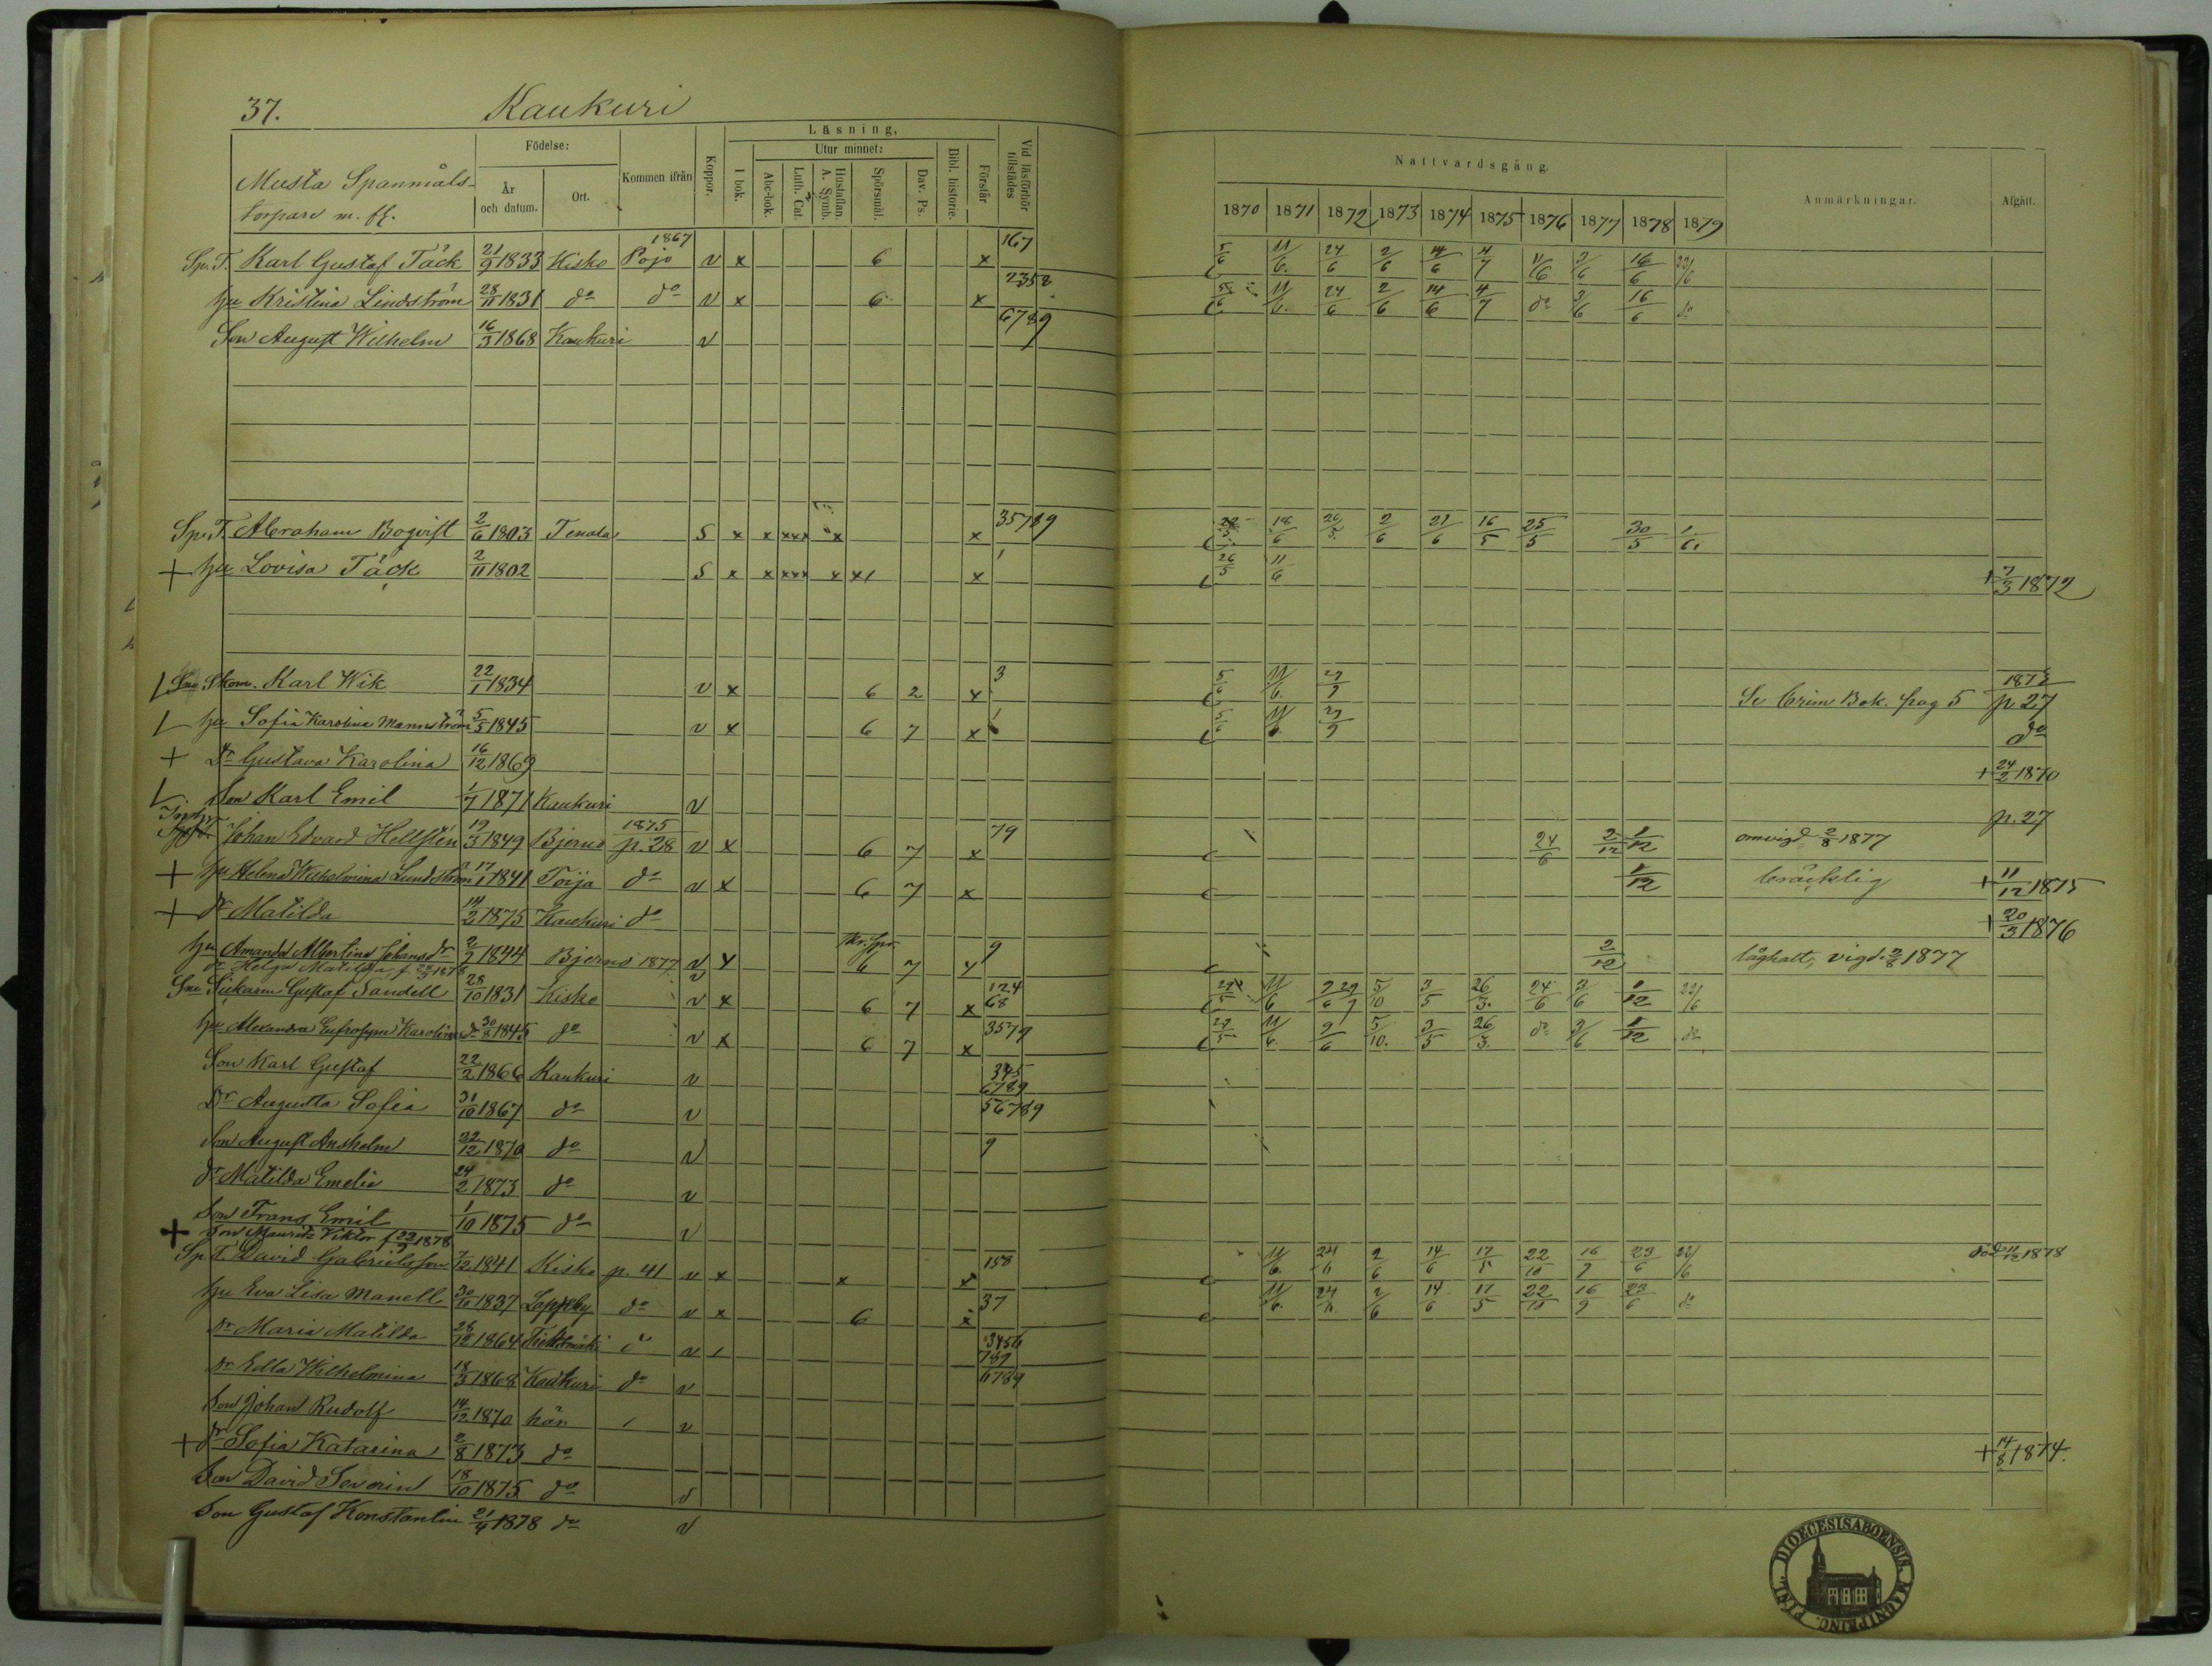 37. Kaukuri
Musta Spanmåls-
torpare m. fl.
Födelse:
År och datum.
Ort.
Kommen ifrån
Koppor.
Läsning,
I bok.
Utur minnet:
Abc-bok.
Luth. Cat.
Hustaflan. A. Symb.
Spörsmål.
Dav. Ps.
Bibl. historie.
Förstår
Vid läsförhör tillstädes
Nattvardsgång.
1870 1871 1872 1873 1874 1875 1876 1877 1878 1879
Anmärkningar.
Afgått.
Sp. T. Karl Gustaf Täck 21/9 1833 Kisko 1867 Pojo v x 6 x 167 5/6 11/6. 24/6 2/6 14/6 4/7 11/6 3/6 16/6 22/6
hu Kristina Lindström 28/11 1831 do do v x 6 x 2358 11/6. 24/6 2/6 14/6 4/7 do 3/6 16/6 do
Son August Wilhelm 16/3 1868 Kaukuri v 6789
Sp. T. Abraham Boqvist 2/6 1803 Tenala S x x xxx x x 35789 18/6 26/5. 2/6 21/6 16/5 25/5 30/5 1/6.
+ hu Lovisa Täck 2/11 1802 S x x xxx x x1 x 1 26/5 11/6 + 7/3 1872
Skom. Karl Wik 22/1 1834 v x 6 2 x 3 5/6 11/6. 29/9 Se Crim Bok. pag 5 1873 p. 27
hu Sofia Karolina Mannström 5/5 1845 v x 6 7 x 5/6 11/6. 29/9 do
+ Dr Gustava Karolina 16/12 1869 + 24/2 1870
Son Karl Emil 1/7 1871 Kaukuri v p. 27
Johan Edvard Hellstén 19/3 1849 Bjerno 1875 p. 28 v x 6 7 x 79 24/6 2/12 1/12 omvigd 2/8 1877
+ hu Helena Wilhelmina Lundström 17/1 1841 Toija do v x 6 7 x 1/12 bräcklig + 11/12 1875
+ dr Matilda 14/2 1875 Kaukuri do + 20/3 1876
hu Amanda Albertina Johansdr 2/7 1844 Bjerno 1877 v x 6 7 x 9 2/12 låghalt, vigd. 2/8 1877
dr Helga Matilda f 1878 v
Gustaf Sandell 28/10 1831 Kisko v x 6 7 x 124 68 11/6 5/10 3/5 26/3. 24/6 3/6 1/12 22/6
hu Alexandra Eufrosyne Karolina 30/8 1845 do v x 6 7 x 3579 29/5 11/6. 9/6 5/10. 3/5 26/3. do 3/6 1/12 do
Son Karl Gustaf 22/2 1866 Kaukuri v 345 6789
Dr Augusta Sofia 31/10 1867 do v 56789
Son August Anshelm 22/12 1870 do v 9
dr Matilda Emelie 24/2 1873 do v
Son Frans Emil 1/10 1875 do v
+ Son Mauritz Viktor f 22/9 1878 död 11/12 1878
Sp. T. David Gabrielsson 7/12 1841 Kisko p. 41 v x x x 158 11/6. 24/11 2/6 14/6 17/5 22/10 16/9 23/6 22/6
hu Eva Lisa Manell 30/10 1837 do v x 6 x 37 11/6. 24/11. 2/6 14/6 17/5 22/10 16/9 23/6 do
dr Maria Matilda 28/12 1864 v 3456 789
dr Edla Wilhelmina 18/3 1868 Kaukuri do v 6789
Son Johan Rudolf 14/12 1870 här v
+ dr Sofia Katarina 2/8 1873 do + 14/8 1874.
Son David Severin 18/10 1875 do
Son Gustaf Konstantin 21/4 1878 do v
DIOECESIS ABOENSIS. MAGNI PRINC. FINL.